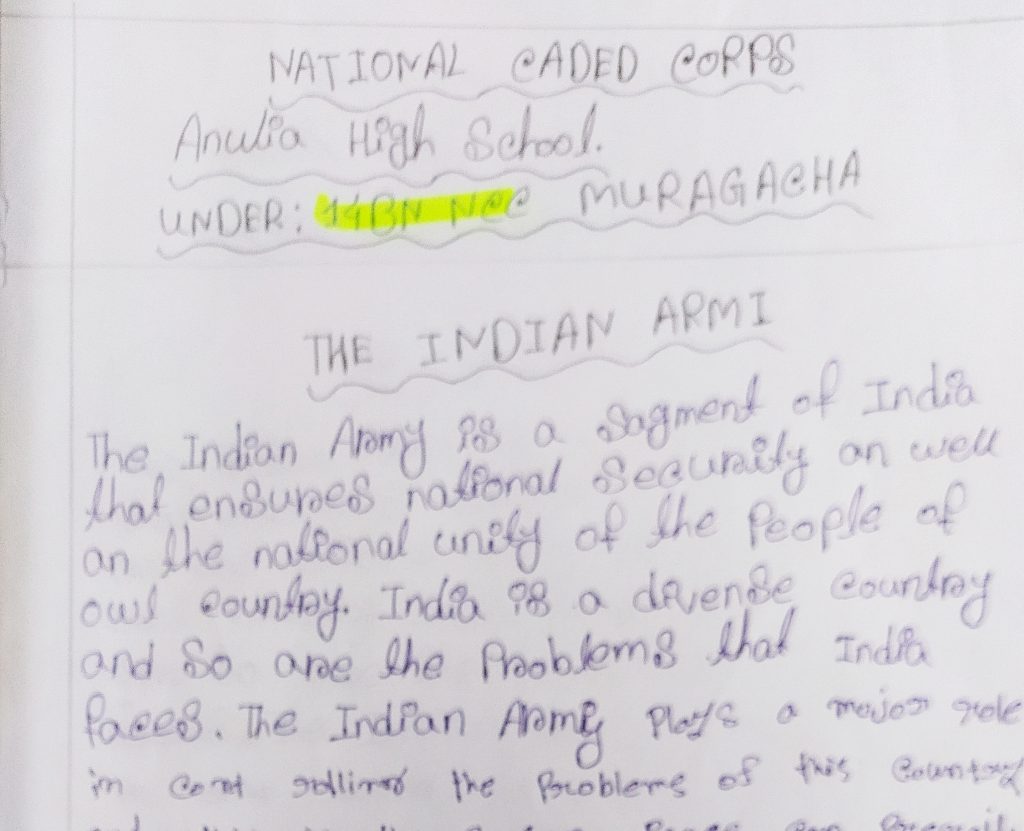 NATIONAL CADED CORPS
Anulia High School.
UNDER: 14BN NCC MURAGACHA
THE INDIAN ARMI
The Indian Army is a Sagment of India
that ensures national Security an well
an the national unity of the People of
owl country. India is a divense country
and So are the Problems that India
faces. The Indian Army Plays a major role
in the Problems of this Country